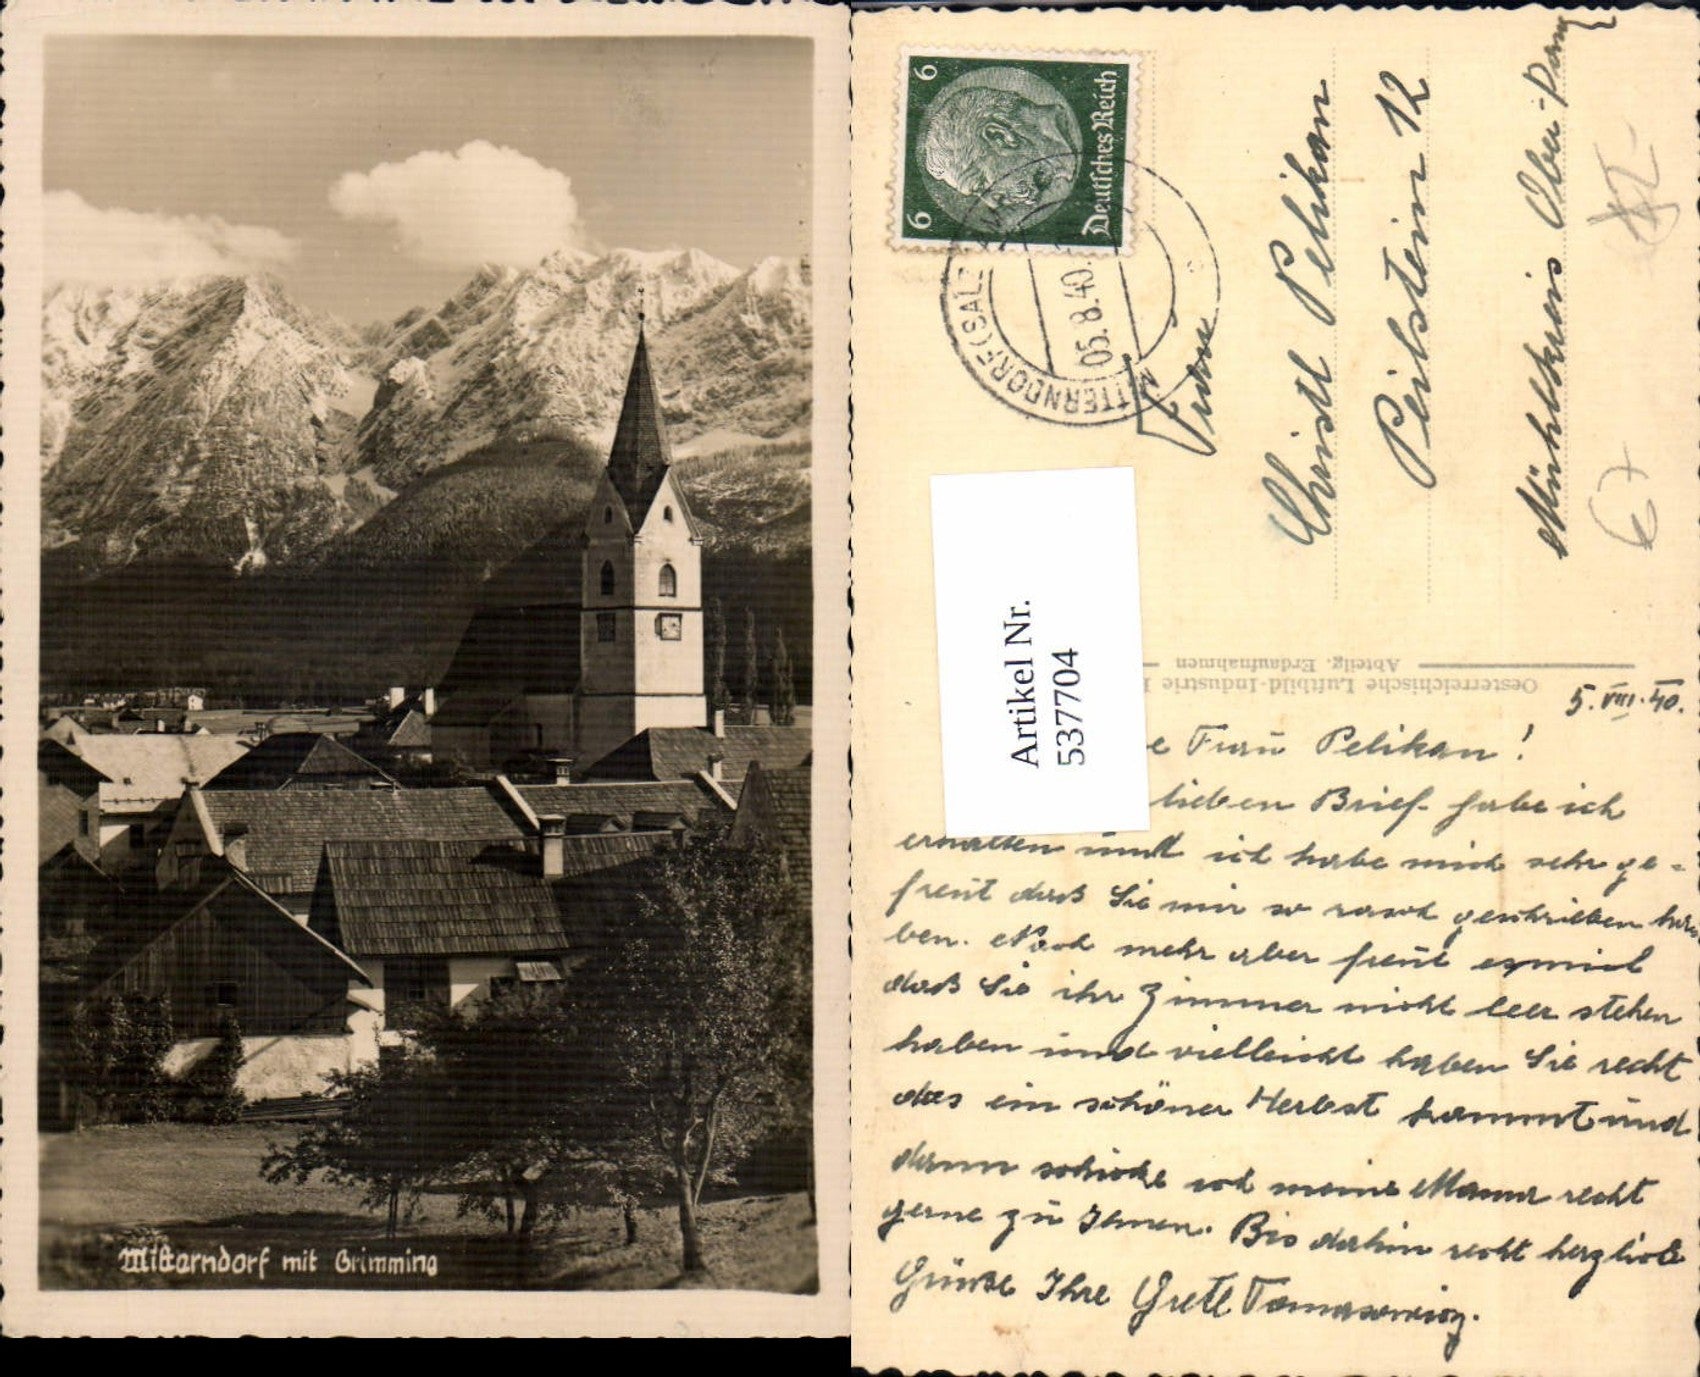 Mitterndorf mit Grimming
6
6
Deutsches Reich
ITTERNDORF (SALZ
05.8.40.
Frau
Christl Pelikan
Peilstein 12
Mühlkreis Ober-Donau
67
Artikel Nr.
537704
Oesterreichische Luftbild-Industrie
Abteilg. Erdaufnahmen
5.VIII.40.
e Frau Pelikan!
lieben Brief habe ich
erhalten und ich habe mich sehr ge=
freut daß Sie mir so rasch geschrieben ha
ben. Noch mehr aber freut es mich
daß Sie ihr Zimmer nicht leer stehen
haben und vielleicht haben Sie recht
das ein schöner Herbst kommt und
dann schicke ich meine Mama recht
gerne zu Ihnen. Bis dahin recht herzliche
Grüße Ihre Gretl